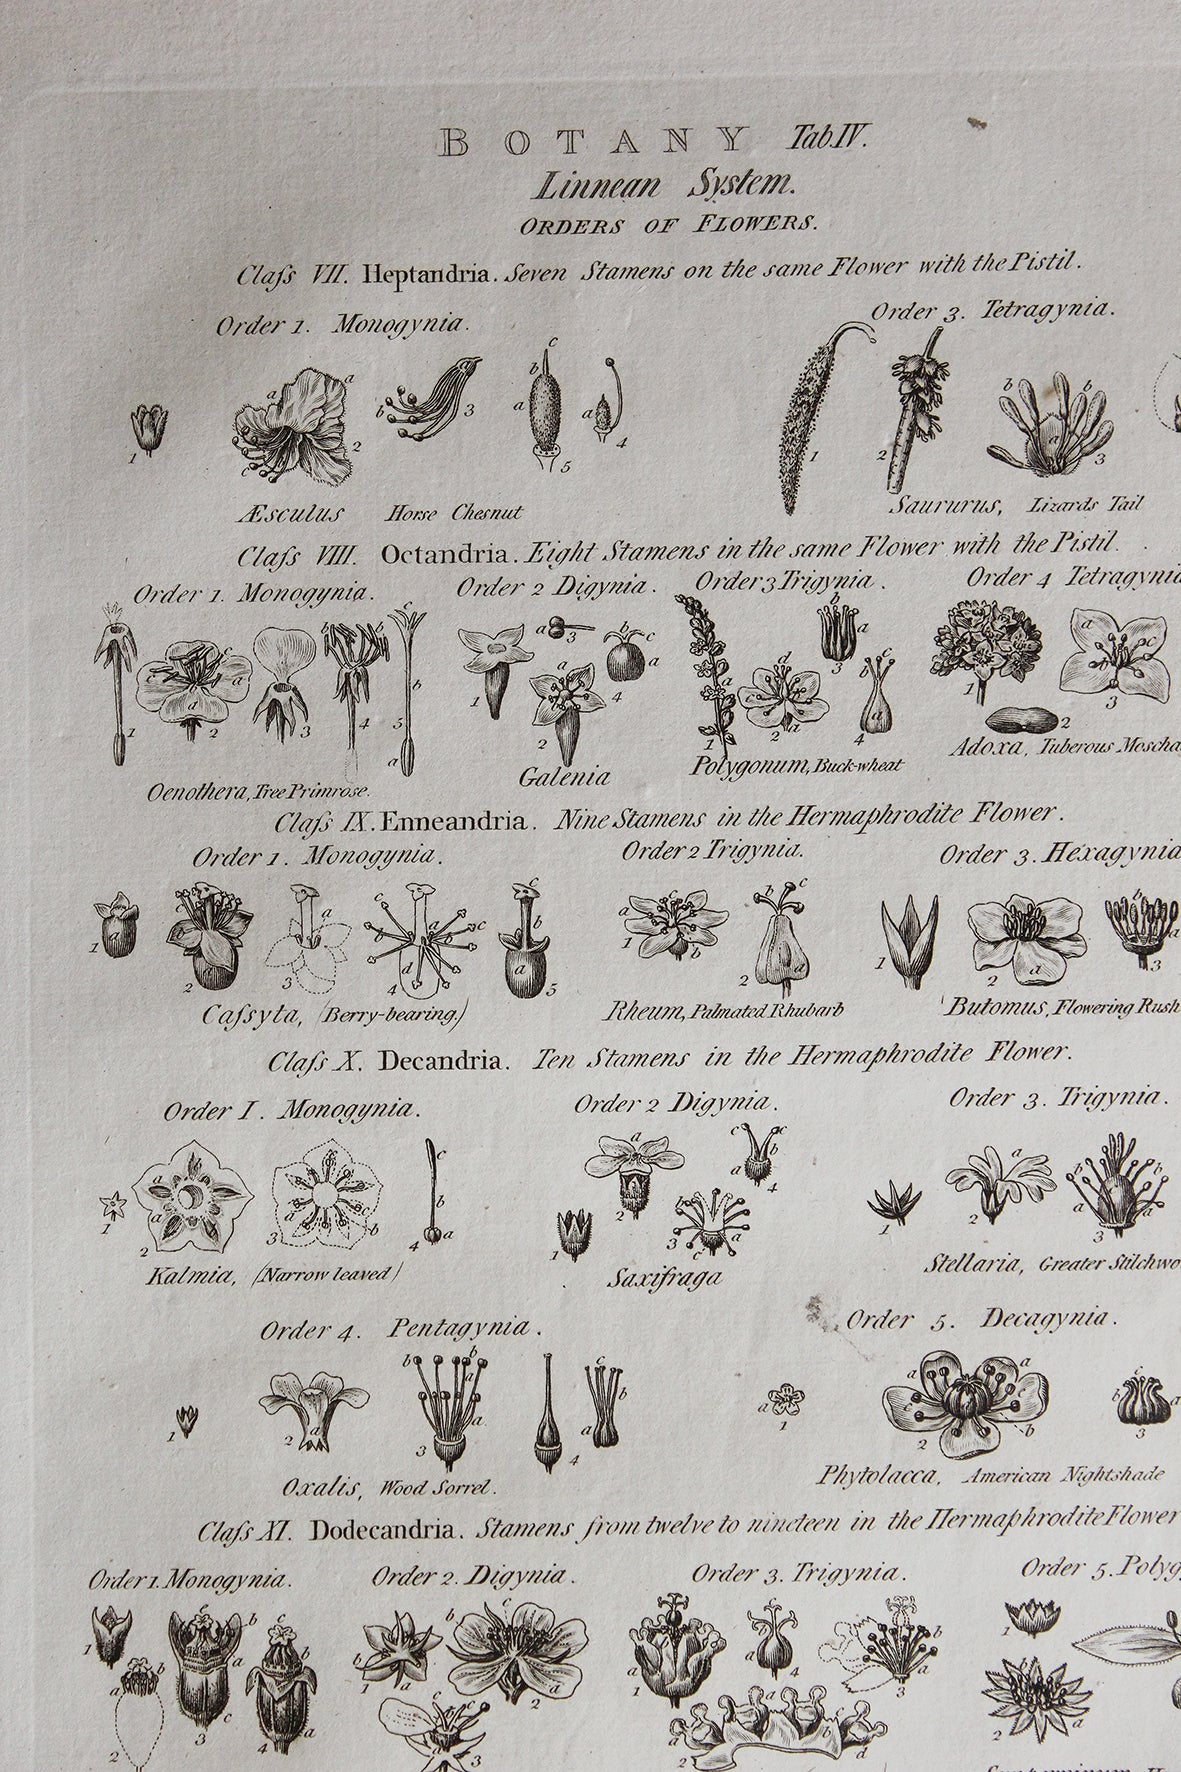 BOTANY Tab.IV.
Linnean System.
ORDERS OF FLOWERS.
Claſs VII. Heptandria. Seven Stamens on the same Flower with the Pistil.
Order 1. Monogynia. Order 3. Tetragynia.
1 a a 2 c b 3 c b a 5 a 4 1 2 b b a 3
ÆSCULUS Horse Chesnut Saururus, Lizards Tail
Claſs VIII. Octandria. Eight Stamens in the same Flower with the Pistil.
Order 1. Monogynia. Order 2 Digynia. Order 3 Trigynia. Order 4 Tetragynia
1 c a d 2 3 b b 4 c b 5 a 1 a 3 a 2 b c a 4 a 1 d c a 2 b a 3 c b d 4 1 2 a c b 3
Oenothera, Tree Primrose. Galenia Polygonum, Buck-wheat Adoxa, Tuberous Moscha
Claſs IX. Enneandria. Nine Stamens in the Hermaphrodite Flower.
Order 1. Monogynia. Order 2 Trigynia. Order 3. Hexagynia
1 a 2 a 3 c d 4 c b a 5 a c 1 b b c 2 a 1 2 d b a 3
Caſsyta, (Berry-bearing.) Rheum, Palmated Rhubarb Butomus, Flowering Rush
Claſs X. Decandria. Ten Stamens in the Hermaphrodite Flower.
Order I. Monogynia. Order 2 Digynia. Order 3. Trigynia.
1 a b a 2 a b 3 c b a 4 1 a 2 b a c 3 c c b a 4 1 a 2 b b a a 3
Kalmia, (Narrow leaved) Saxifraga Stellaria, Greater Stilchwo
Order 4. Pentagynia. Order 5. Decagynia.
1 a 2 b b a a 3 4 c b a a 1 a a c b 2 c b a 3
Oxalis, Wood Sorrel. Phytolacca, American Nightshade
Claſs XI. Dodecandria. Stamens from twelve to nineteen in the Hermaphrodite Flower
Order 1. Monogynia. Order 2. Digynia. Order 3. Trigynia. Order 5. Polyg
1 b a 2 c b a c 3 c b a 4 b a 1 c b a 2 c c 3 a 1 c b a 4 b a 3 a a b d 2 1 b a 2